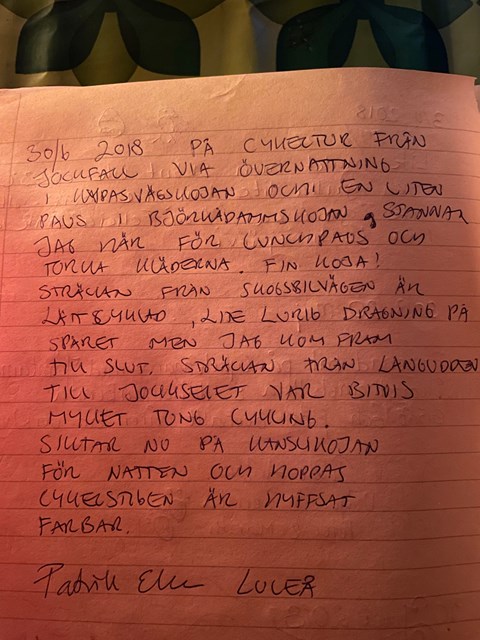 30/6 2018 PÅ CYKELTUR FRÅN
JOCKFALL VIA ÖVERNATTNING
I KÄPASVÄGSKOJAN OCH EN LITEN
PAUS I BJÖRKÅDAMMSKOJAN, STANNAR
JAG HÄR FÖR LUNCHPAUS OCH
TORKA KLÄDERNA. FIN KOJA!
STRÄCKAN FRÅN SKOGSBILVÄGEN ÄR
LÄTTCYKLAD, LITE LURIG DRAGNING PÅ
SPÅRET MEN JAG KOM FRAM
TILL SLUT. STRÄCKAN FRÅN LÅNGUDDEN
TILL JOCKSELET VAR BITVIS
MYCKET TUNG CYKLING.
SIKTAR NU PÅ KANSLIKOJAN
FÖR NATTEN OCH HOPPAS
CYKELSTIGEN ÄR HYFFSAT
FARBAR.
Patrik LULEÅ